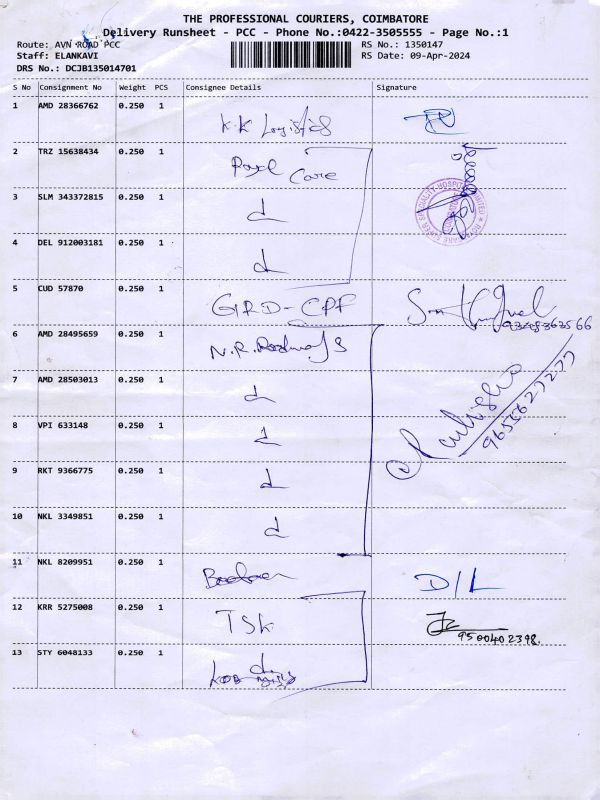 THE PROFESSIONAL COURIERS, COIMBATORE
Delivery Runsheet - PCC - Phone No.:0422-3505555 - Page No.:1
Route: AVN ROAD PCC
RS No.: 1350147
Staff: ELANKAVI
RS Date: 09-Apr-2024
DRS No.: DCJB135014701
S No Consignment No Weight PCS Consignee Details Signature
1 AMD 28366762 0.250 1 K.K Logistics
2 TRZ 15638434 0.250 1 Royal Care
3 SLM 343372815 0.250 1 d
4 DEL 912003181 0.250 1 d
5 CUD 57870 0.250 1 GRD-CPF
6 AMD 28495659 0.250 1 N.R. Roadways
7 AMD 28503013 0.250 1 d
9655627277
8 VPI 633148 0.250 1 d
9 RKT 9366775 0.250 1 d
10 NKL 3349851 0.250 1 d
11 NKL 8209951 0.250 1 D/L
12 KRR 5275008 0.250 1 TSK 9500402398.
13 STY 6048133 0.250 1 d